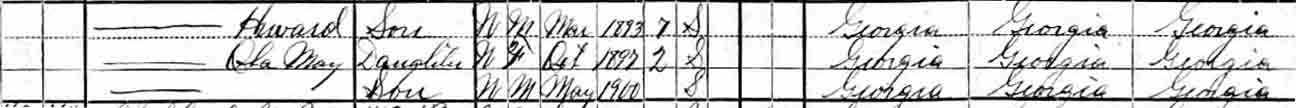 — Howard Son W M Mar 1893 7 S Georgia Georgia Georgia
— Ola May Daughter W F Oct 1897 2 S Georgia Georgia Georgia
— Son W M May 1900 S Georgia Georgia Georgia